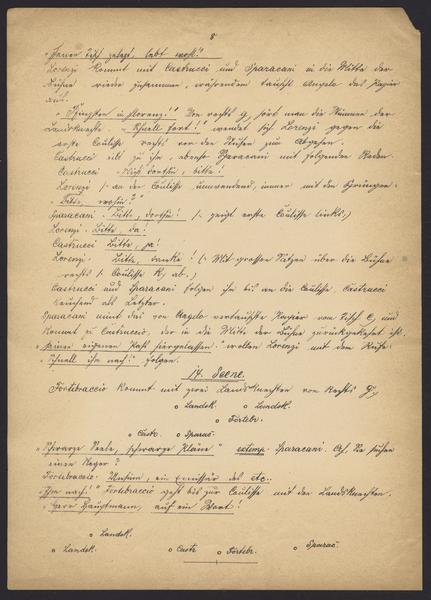 8
Lorenzi kommt mit Castrucci und Sparacani in die Mitte der
Bühne wieder zusammen, währenddem tauscht Angelo das Papier
aus.
Von rechts g, hört man die Stimmen der
Landsknechte. "Schnell fort!" wendet sich Lorenzi gegen die
erste Coulisse rechts vor den Stufen zum Abgehen.
Castrucci eilt zu ihm, ebenso Sparacani mit folgenden Reden.
Castrucci - Nicht dorthin, bitte!
Lorenzi /: an der Coulisse umwendend, immer mit den Sprüngen.
"Bitte, wohin?"
Sparacani. Bitte, dorthin! /: zeigt erste Coulisse links.)
Lorenzi. Bitte, da!
Castrucci Bitte, ja!
Lorenzi. Bitte, danke! (: Mit grossen Sätzen über die Bühne
rechts 1. Coulisse K, ab.)
Castrucci und Sparacani folgen ihm bis an die Coulisse. Castrucci
keuchend als Letzter.
Sparacani nimt das von Angelo vertauschte Papier vom Tisch C, und
kommt zu Castruccio, der in die Mitte der Bühne zurückgekehrt ist.
wollen Lorenzi mit dem Rufe
"Schnell ihm nach!" folgen.
17. Scene.
Fortebraccio kommt mit zwei Landsknechten von Rechts G,
o Landsk. o Landsk.
o Fortebr.
o Castr. o Sparac.
"Schwarze Seele, schwarze Pläne" extemp. Sparacani. Ah, Sie suchen
einen Neger?
Fortebraccio: Unsinn, ein Emissär des etc..
"Ihm nach!" Fortebraccio geht bis zur Coulisse mit den Landsknechten.
"Herr Hauptmann, auf ein Wort!
o Landsk.
o Landsk. o Castr o Fortebr. o Sparac.